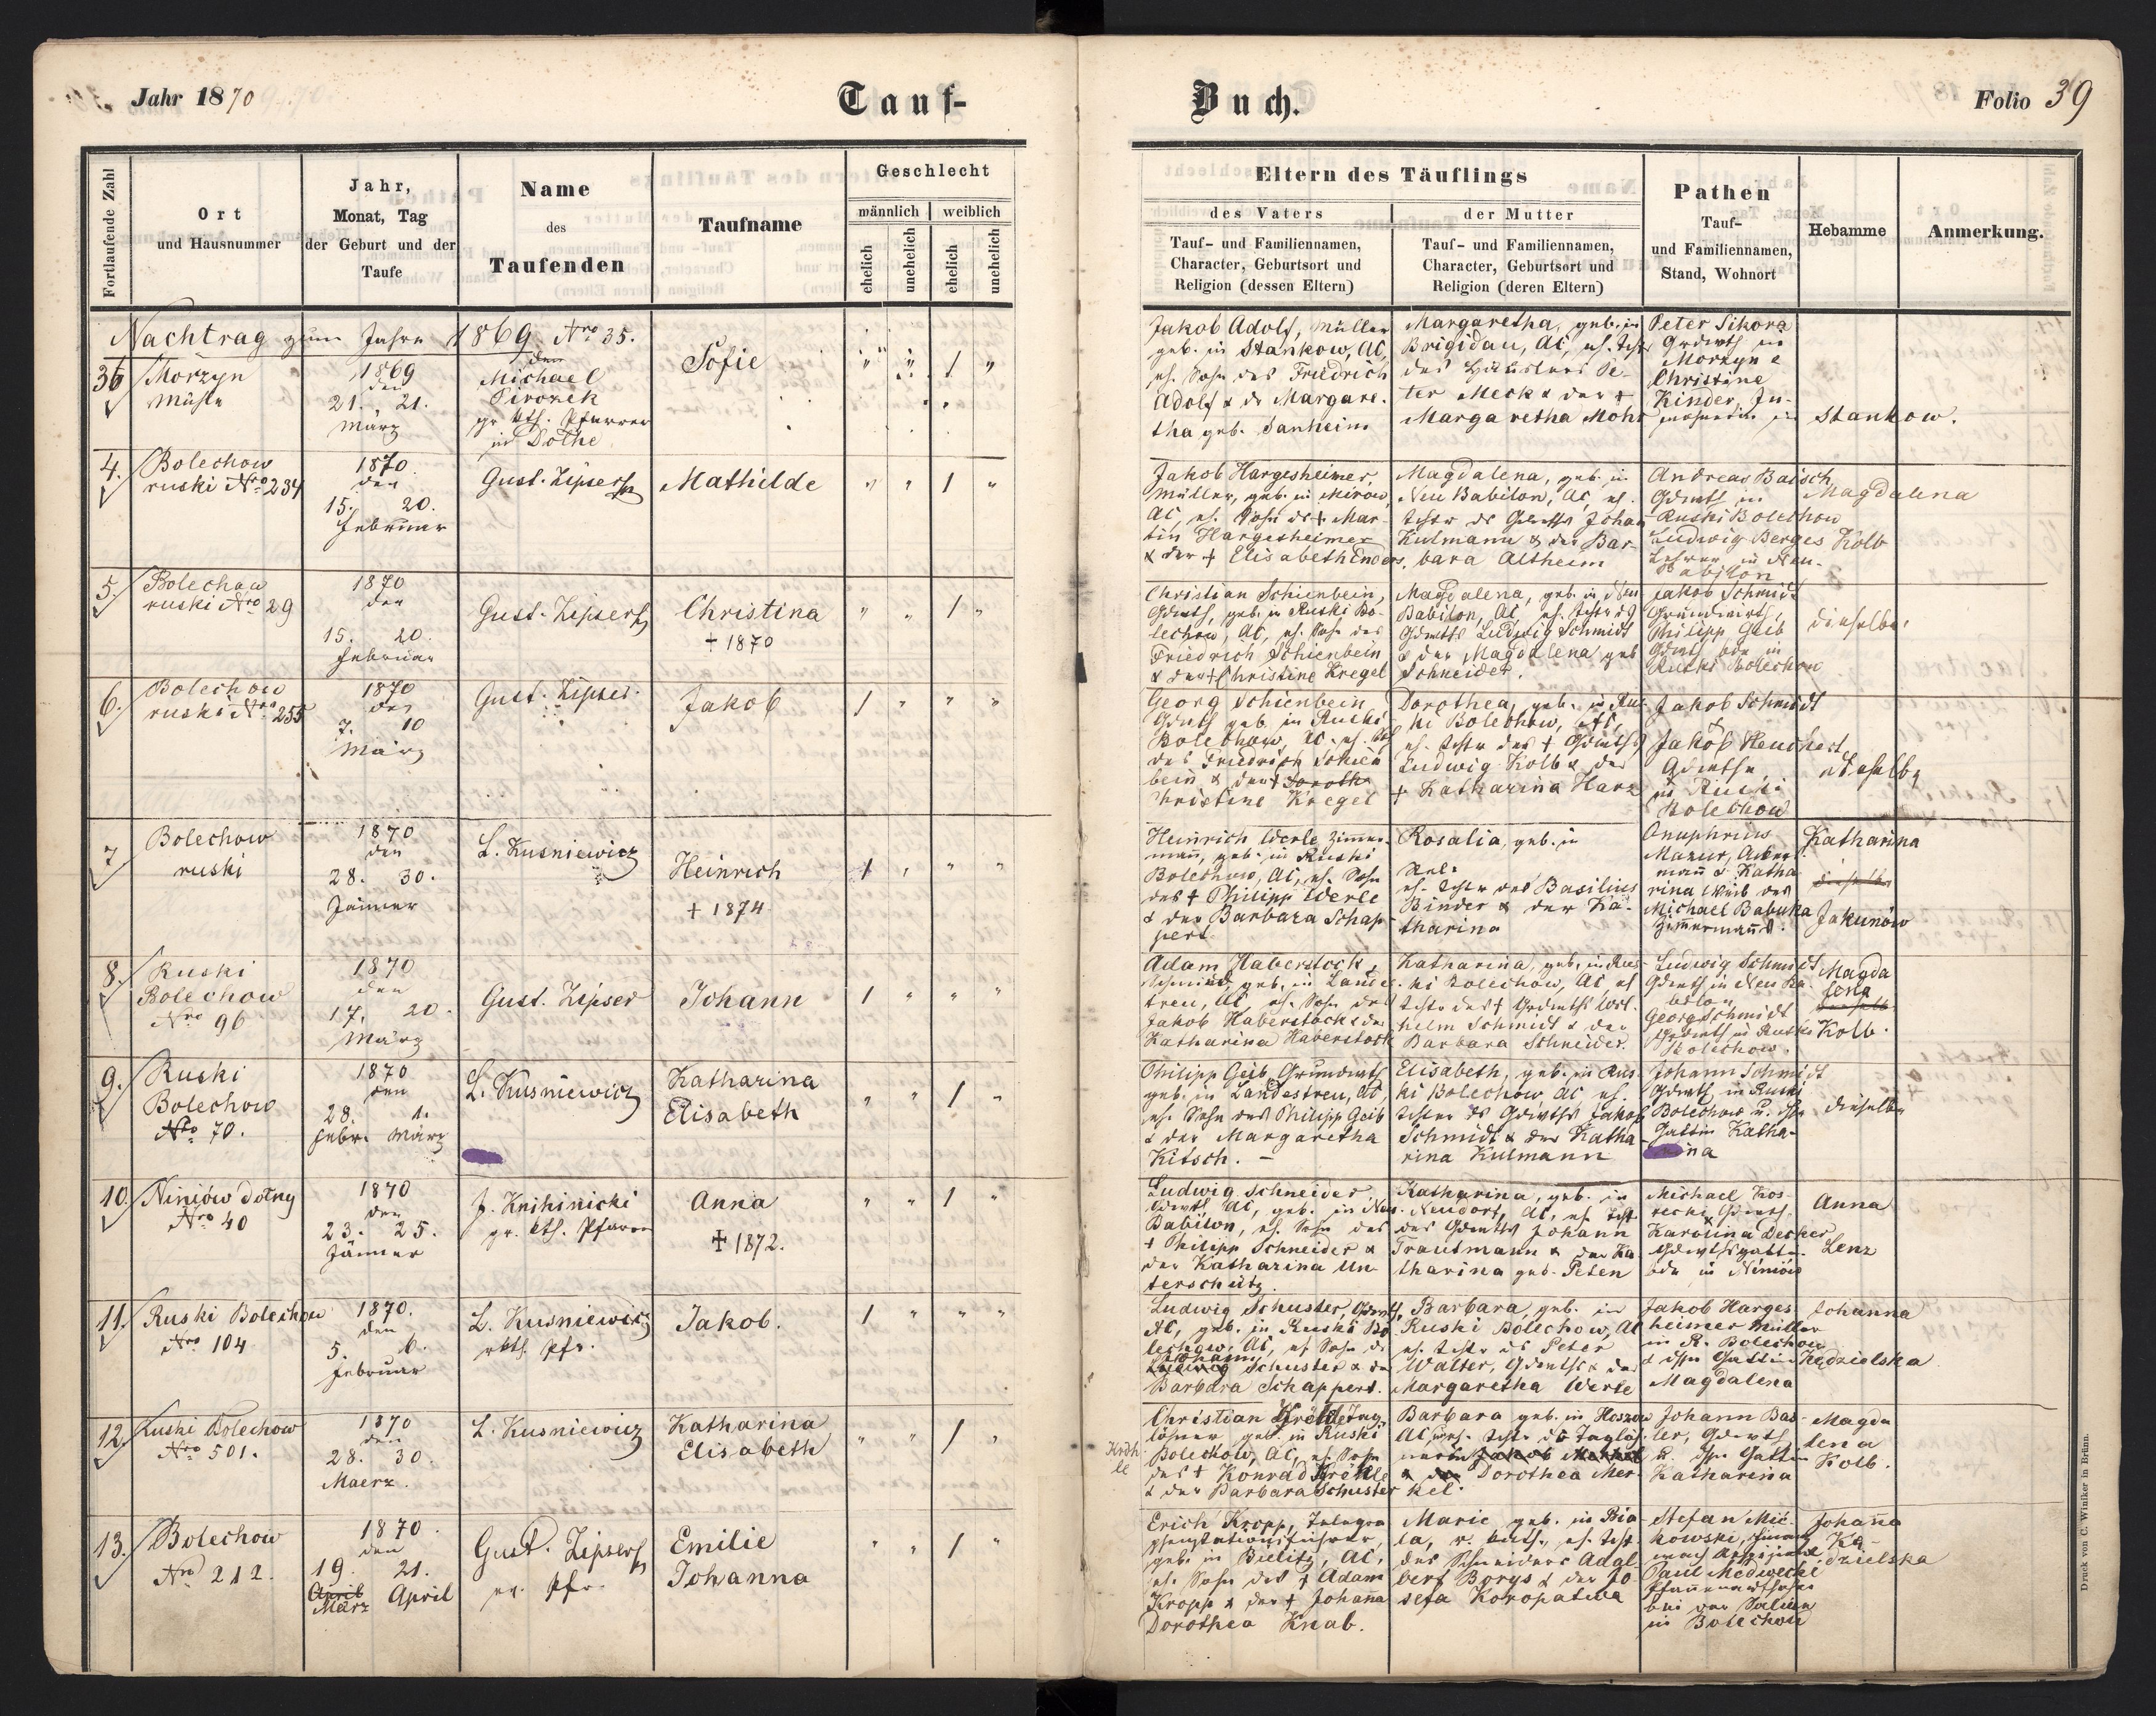 Jahr 1870
Tauf-
Buch.
Folio 39
Fortlaufende Zahl
Ort
und Hausnummer
Jahr,
Monat, Tag
der Geburt und der
Taufe
Name
des
Taufenden
Taufname
Geschlecht
männlich
weiblich
ehelich
unehelich
ehelich
unehelich
Eltern des Täuflings
des Vaters
Tauf- und Familiennamen,
Character, Geburtsort und
Religion (dessen Eltern)
der Mutter
Tauf- und Familiennamen,
Character, Geburtsort und
Religion (deren Eltern)
Pathen
Tauf-
und Familiennamen,
Stand, Wohnort
Hebamme
Anmerkung.
Nachtrag zum Jahre 1869 Nro 35.
36
Morzyn
Mühle
1869
den
21. 21.
März
den
Michael
Pironek
gr. kth. Pfarrer
in Dolhe
Sofie
" " / "
Jakob Adolf, Müller
geb. in Stankow, AC,
eh. Sohn des Friedrich
Adolf & dr Margare-
tha geb. Sanheim
Margaretha, geb. in
Brigidau, AC, eh. Tchtr
des Häuslers Pe-
ter Meck & der +
Margaretha Mohr
Peter Sikora
Grdwth in
Morzyn &
Christine
Kinder, In-
in
Stankow.
4.
Bolechow
ruski Nro 234
1870
den
15. 20.
Februar
Gust. Zipser
Mathilde
" " / "
Jakob Hargesheimer,
Müller, geb. in Mirow,
AC, eh. Sohn ds + Mar-
tin Hargesheimer
& der + Elisabeth Enders,
Magdalena, geb. in
Neu Babilon, AC, eh.
Tchtr ds Grdwths Johan
Kulmann & der Bar-
bara Altheim
Andreas Baisch
Gdwth in
Ruski Bolechow
Ludwig Berges
Lehrer in Neu-
Babilon
Magdalena
Kolb
5.
Bolechow
ruski Nro 29
1870
den
15. 20.
Februar
Gust. Zipser
Christina
+ 1870
" " / "
Christian Schienbein,
Gdwth, geb. in Ruski Bo-
lechow, AC, eh. Sohn des
Friedrich Schienbein
& der + Christine Kregel
Magdalena, geb. in Neu
Babilon, AC, eh. Tchtr ds
Gdwths Ludwig Schmidt
& der Magdalena geb
Schneider.
Jakob Schmidt
Grundwirth,
Philipp Geib
Gdwth bde in
Ruski Bolechow
dieselbe
6.
Bolechow
ruski Nro 255
1870
den
7. 10
März
Gust. Zipser.
Jakob
/ " " "
Georg Schienbein
Gdwth geb. in Ruski
Bolechow, AC, eh. Sohn
des Friedrich Schien
bein & der + Doroth
Christine Kregel
Dorothea, geb. in Rus-
ki Bolechow, AC,
eh. Tchtr des + Gdwths
Ludwig Kolb & der
+ Katharina Harz
Jakob Schmidt
&
Jakob Heuchert
Gdwthe,
in Ruski
Bolechow
dieselbe
7
Bolechow
ruski
1870
den
28. 30.
Jänner
L. Kusniewicz
Heinrich
+ 1874
/ " " "
Heinrich Werle Zimmer-
mann, geb. in Ruski
Bolechow, AC, eh. Sohn
des + Philipp Werle
& der Barbara Schap-
pert
Rosalia, geb. in
eh. Tchtr des Basilius
Binder & der Ka-
tharina
Onuphrius
Mazur, Acker
mann & Katha
rina Weib des
Michael Babuka
Zimmermanns.
Katharina
dieselbe
Jakunów
8.
Ruski
Bolechow
Nro 96
1870
den
17. 20.
März
Gust. Zipser
Johann
/ " " "
Adam Haberstock,
Schmied, geb. in Lande-
treu, AC, eh. Sohn des
Jakob Haberstock & der
Katharina Haberstock
Katharina, geb. in Rus-
ki Bolechow, AC, eh
Tchtr des + Grdwths Wil-
helm Schmidt & der
Barbara Schneider.
Ludwig Schmidt
Gdwth in Neu Ba-
bilon,
Georg Schmidt
Gdwth in Ruski
Bolechow.
Magda
lena
dieselbe
Kolb.
9.
Ruski
Bolechow
Nro 70.
1870
den
28. 1.
Febr. März
L. Kusniewicz
Katharina
Elisabeth
" " / "
Philipp Geib, Grundwirth
geb. in Landestreu, AC,
eh. Sohn des Philipp Geib
& der Margaretha
Kitsch. -
Elisabeth, geb. in Rus-
ki Bolechow, AC, eh.
Tchter ds Gdwths Jakob
Schmidt & der Katha-
rina Kulmann
Johann Schmidt
Gdwth in Ruski
Bolechow u. dsn
Gattin Katha-
rina
dieselbe
10.
Niniów dolny
Nro 40
1870
den
23. 25.
Jänner
J. Knihinicki
gr. kth. Pfarrer
Anna
+ 1872.
" " / "
Ludwig Schneider,
Gdwth AC, geb. in Neu-
Babilon, eh. Sohn des
+ Philipp Schneider &
der Katharina Un-
terschütz.
Katharina, geb. in
Neudorf, AC, eh. Tcht
des Gdwths Johann
Trautmann & der Ka-
tharina geb. Peten
Michael Kos-
tecki, Gdwth,
&
Karolina Decker
Gdwthsgattin
bde in Niniów
Anna
Lenz
11.
Ruski Bolechow
Nro 104
1870.
den
5. 6.
Februar
L. Kusniewicz
rkth. Pfr.
Jakob.
/ " " "
Ludwig Schuster, Gdwth,
AC, geb. in Ruski Bo-
lechow, AC, eh Sohn ds
Johann
Ludwig Schuster & der
Barbara Schappert.
Barbara, geb. in
Ruski Bolechow, AC
eh. Tchtr ds Peter
Walter, Gdwths & der
Margaretha Werle
Jakob Harges-
heimer Müller
in R. Bolechow
& dssn Gattin
Magdalena
Johanna
Kędzielska
12.
Ruski Bolechow
Nro 501.
1870
den
28. 30.
Maerz.
L. Kusniewicz
Katharina
Elisabeth
" " / "
Krdh
le
Christian Tag-
löhner geb. in Ruski
Bolechow, AC, eh. Sohn
des + Konrad
& der Barbara Schuster
Barbara geb. in Hoszow
AC, uneh. Tchtr ds Taglöh-
ners Jakob Merkel
& der Dorothea Mer-
kel.
Johann Bas-
ler, Gdwth
u. dsn Gattin
Katharina
Magda
lena
Kolb.
13.
Bolechow
Nro 212.
1870.
den
19. 21.
April
März April
Gust. Zipser
ev. Pfr.
Emilie
Johanna
" " / "
Erich Kropp, Telegra
phenstationsführer,
geb. in Bielitz, AC,
eh. Sohn des + Adam
Kropp & der + Johanna
Dorothea Knab.
Marie geb. in Bia-
la, r. kath., eh. Tcht.
des Schneiders Adal-
bert Borys & der Jo-
sefa Koropatwa
Stefan Mic-
kowski,
Paul Medwecki
bei der Saline
in Bolechow
Johanna
Kę-
dzielska
Druck von C. Winiker in Brünn.